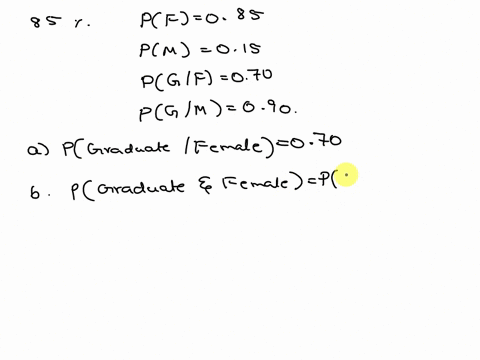 85 %. P(F)=0.85
P(M) = 0.15
P(G/F)=0.70
P(G/M)=0.90.
a) P(Graduate /Female)=0.70
b. P(Graduate & Female)=P(